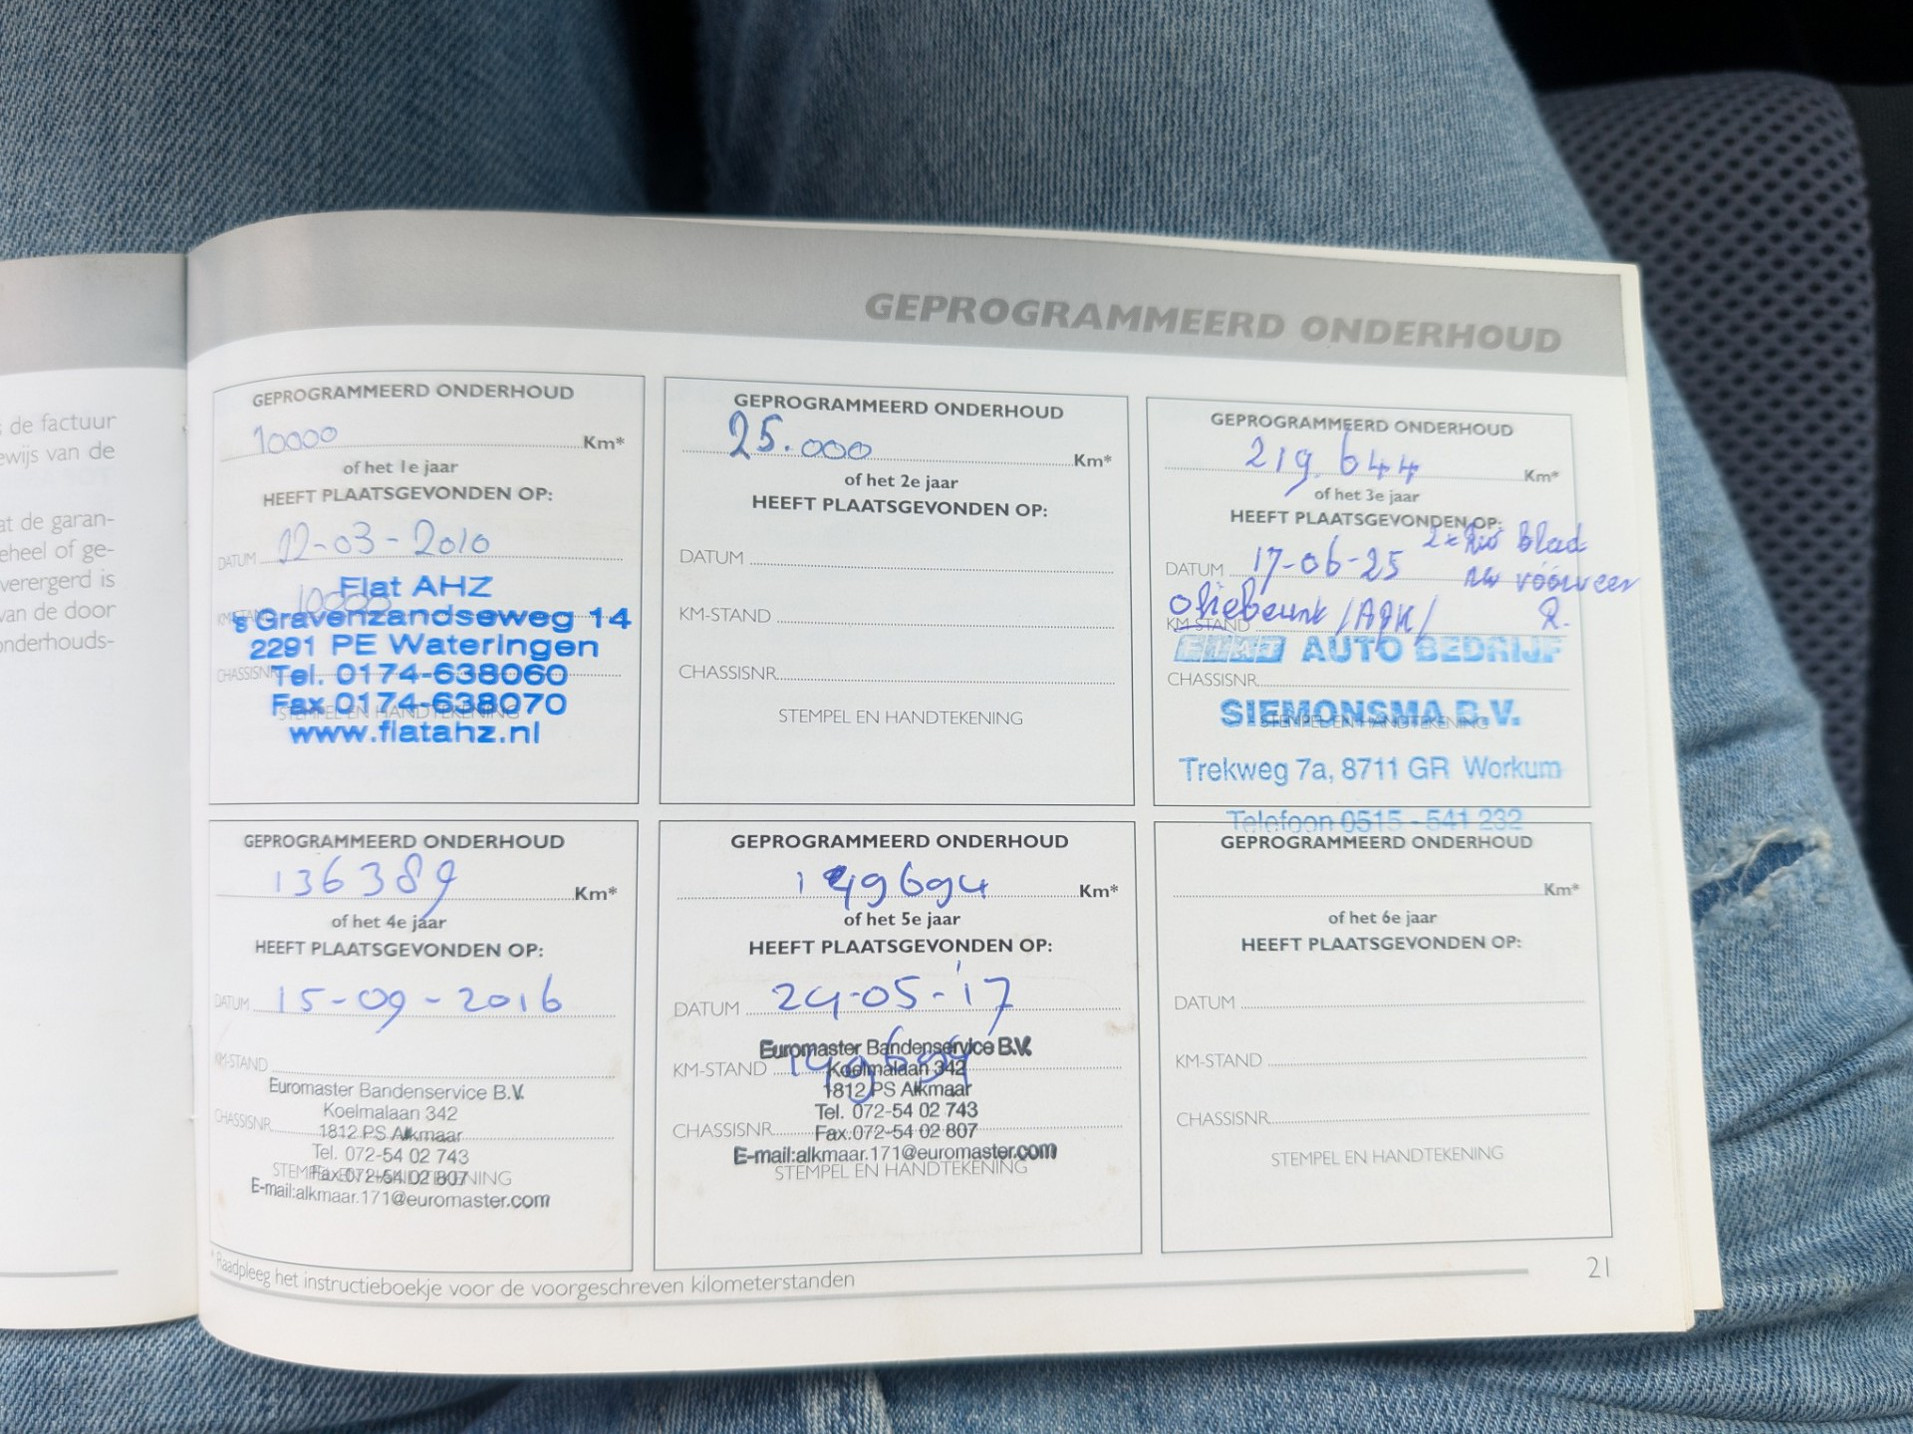 de factuur
ewijs van de
at de garan-
eheel of ge-
verergerd is
van de door
onderhouds-
GEPROGRAMMEERD ONDERHOUD
GEPROGRAMMEERD ONDERHOUD
10000 Km*
of het 1e jaar
HEEFT PLAATSGEVONDEN OP:
DATUM 22-03-2010
Fiat AHZ
KM-STAND 10000
's Gravenzandseweg 14
2291 PE Wateringen
CHASSISNR
Tel. 0174-638060
Fax 0174-638070
STEMPEL EN HANDTEKENING
www.fiatahz.nl
GEPROGRAMMEERD ONDERHOUD
25.000 Km*
of het 2e jaar
HEEFT PLAATSGEVONDEN OP:
DATUM
KM-STAND
CHASSISNR.
STEMPEL EN HANDTEKENING
GEPROGRAMMEERD ONDERHOUD
219.644 Km*
of het 3e jaar
HEEFT PLAATSGEVONDEN OP:
2x blad
DATUM 17-06-25
vóórveer
oliebeurt /APK/ R.
KM-STAND
FIAT AUTO BEDRIJF
CHASSISNR.
SIEMONSMA B.V.
STEMPEL EN HANDTEKENING
Trekweg 7a, 8711 GR Workum
Telefoon 0515 - 541 232
GEPROGRAMMEERD ONDERHOUD
136389 Km*
of het 4e jaar
HEEFT PLAATSGEVONDEN OP:
DATUM 15-09-2016
KM-STAND
Euromaster Bandenservice B.V.
Koelmalaan 342
CHASSISNR.
1812 PS Alkmaar
Tel. 072-54 02 743
STEMPEL EN HANDTEKENING
Fax.072-54 02 807
E-mail:alkmaar.171@euromaster.com
GEPROGRAMMEERD ONDERHOUD
149694 Km*
of het 5e jaar
HEEFT PLAATSGEVONDEN OP:
DATUM 24-05-'17
Euromaster Bandenservice B.V.
KM-STAND 149694
Koelmalaan 342
1812 PS Alkmaar
Tel. 072-54 02 743
CHASSISNR.
Fax.072-54 02 807
E-mail:alkmaar.171@euromaster.com
STEMPEL EN HANDTEKENING
GEPROGRAMMEERD ONDERHOUD
Km*
of het 6e jaar
HEEFT PLAATSGEVONDEN OP:
DATUM
KM-STAND
CHASSISNR.
STEMPEL EN HANDTEKENING
* Raadpleeg het instructieboekje voor de voorgeschreven kilometerstanden
21